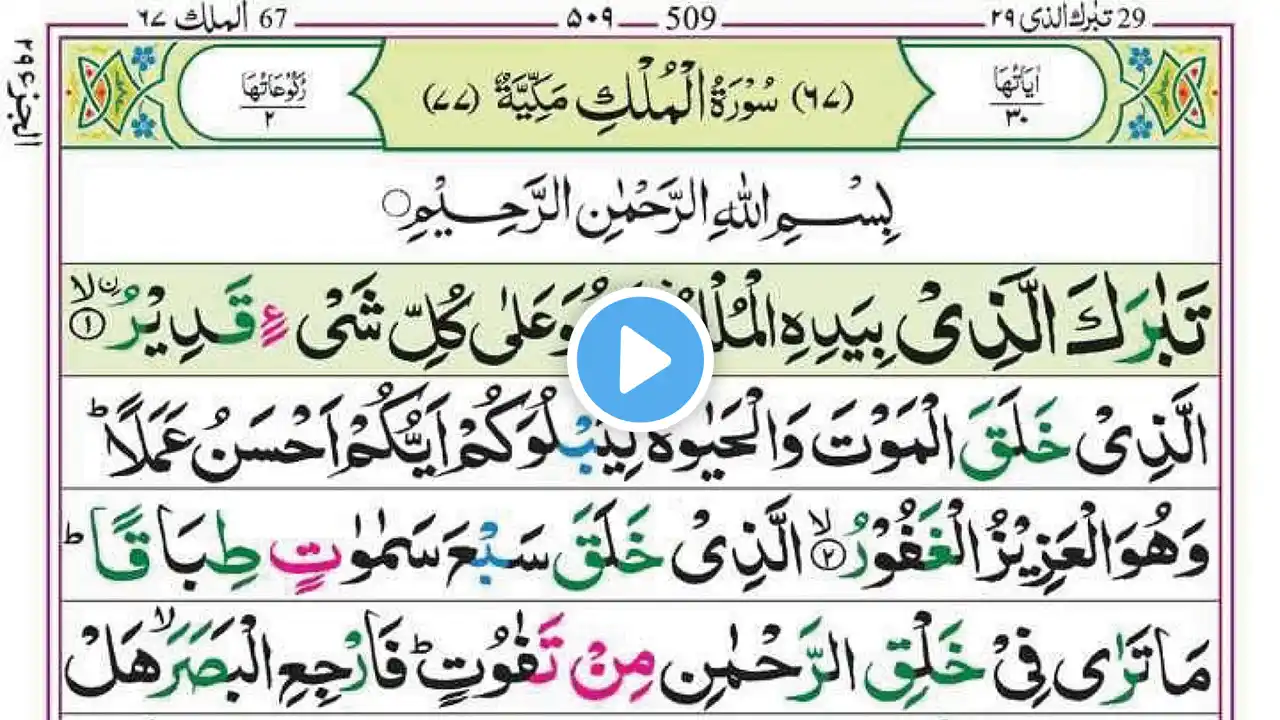 29 تبارك الذی ۲۹
509 — ۵۰۹
67 الملك ۶۷
الجزء ۲۹
اٰیَاتُهَا ۳۰
(۶۷) سُوْرَةُ الْمُلْكِ مَكِّیَّةٌ (۷۷)
رُكُوْعَاتُهَا ۲
بِسْمِ اللّٰهِ الرَّحْمٰنِ الرَّحِیْمِ
تَبٰرَكَ الَّذِیْ بِیَدِهِ الْمُلْكُ وَعَلٰی كُلِّ شَیْءٍ قَدِیْرُ ۙ ۱
الَّذِیْ خَلَقَ الْمَوْتَ وَالْحَیٰوةَ لِیَبْلُوَكُمْ اَیُّكُمْ اَحْسَنُ عَمَلًا ؕ
وَهُوَ الْعَزِیْزُ الْغَفُوْرُ ۙ ۲ الَّذِیْ خَلَقَ سَبْعَ سَمٰوٰتٍ طِبَاقًا ؕ
مَا تَرٰی فِیْ خَلْقِ الرَّحْمٰنِ مِنْ تَفٰوُتٍ ؕ فَارْجِعِ الْبَصَرَ ۙ هَلْ